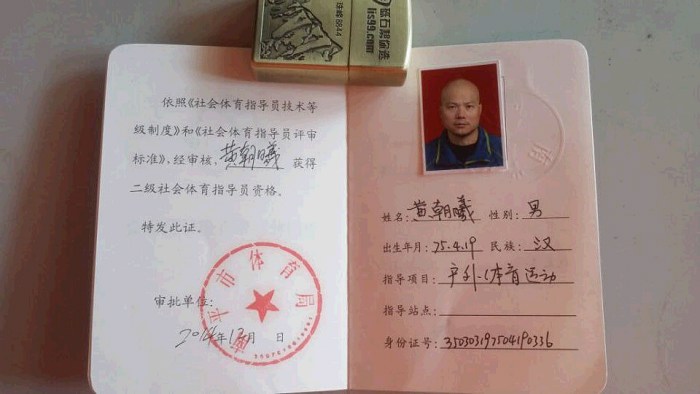 珠峰8844
lis99.com
依照《社会体育指导员技术等
级制度》和《社会体育指导员评审
标准》,经审核,黄朝曦 获得
二级社会体育指导员资格。
特发此证。
南平市体育局
审批单位:
2014年12月 日
姓名:黄朝曦 性别:男
出生年月:75.4.19 民族:汉
指导项目:户外体育运动
指导站点:
身份证号:350303197504190336